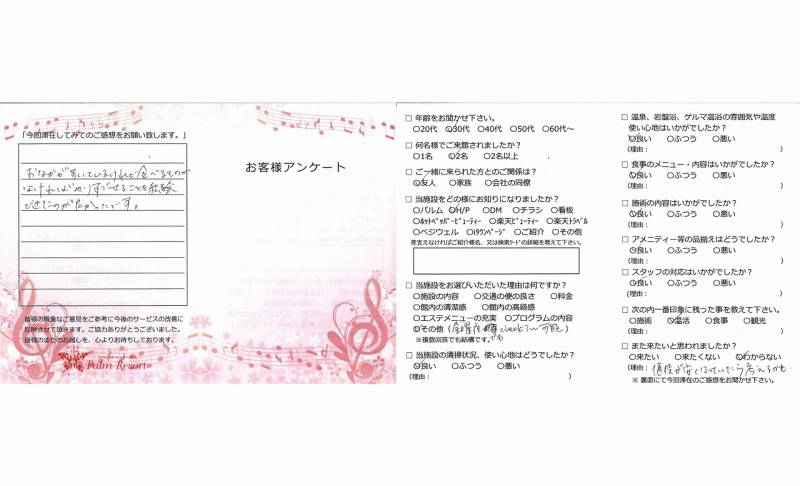 「今回滞在してみてのご感想をお願い致します。」
おなかがすいていたけれど食べるものが
なければ
できたのがよかったです。
皆様の貴重なご意見をご参考に今後のサービスの改善に
反映させて頂きます。ご協力ありがとうございました。
皆様のまたのお越しを、心よりお待ちしております。
Palm Resort
お客様アンケート
□ 年齢をお聞かせ下さい。
○20代 ○30代 ○40代 ○50代 ○60代～
□ 何名様でご来館されましたか？
○1名 ○2名 ○2名以上
□ ご一緒に来られた方とのご関係は？
○友人 ○家族 ○会社の同僚
□ 当施設をどの様にお知りになりましたか？
○パルム ○H/P ○DM ○チラシ ○看板
○ﾎｯﾄﾍﾟｯﾊﾟｰﾋﾞｭｰﾃｨｰ ○楽天ﾋﾞｭｰﾃｨｰ ○楽天ﾄﾗﾍﾞﾙ
○ベジウェル ○iタウンページ ○ご紹介 ○その他
差支えなければご紹介様名、又は検索ﾜｰﾄﾞの詳細を教えて下さい。
□ 当施設をお選びいただいた理由は何ですか？
○施設の内容 ○交通の便の良さ ○料金
○館内の清潔感 ○館内の高級感
○エステメニューの充実 ○プログラムの内容
○その他（金曜 check in 可能）
※複数回答でも結構です。
□ 当施設の清掃状況、使い心地はどうでしたか？
○良い ○ふつう ○悪い
（理由： ）
□ 温泉、岩盤浴、ゲルマ温浴の雰囲気や温度
使い心地はいかがでしたか？
○良い ○ふつう ○悪い
（理由： ）
□ 食事のメニュー・内容はいかがでしたか？
○良い ○ふつう ○悪い
（理由： ）
□ 施術の内容はいかがでしたか？
○良い ○ふつう ○悪い
（理由： ）
□ アメニティー等の品揃えはどうでしたか？
○良い ○ふつう ○悪い
（理由： ）
□ スタッフの対応はいかがでしたか？
○良い ○ふつう ○悪い
（理由： ）
□ 次の内一番印象に残った事を教えて下さい。
○施術 ○温活 ○食事 ○観光
（理由： ）
□ また来たいと思われましたか？
○来たい ○来たくない ○わからない
（理由：値段が安くなっていたら考えるかも。
※ 裏面にて今回滞在のご感想をお聞かせ下さい。